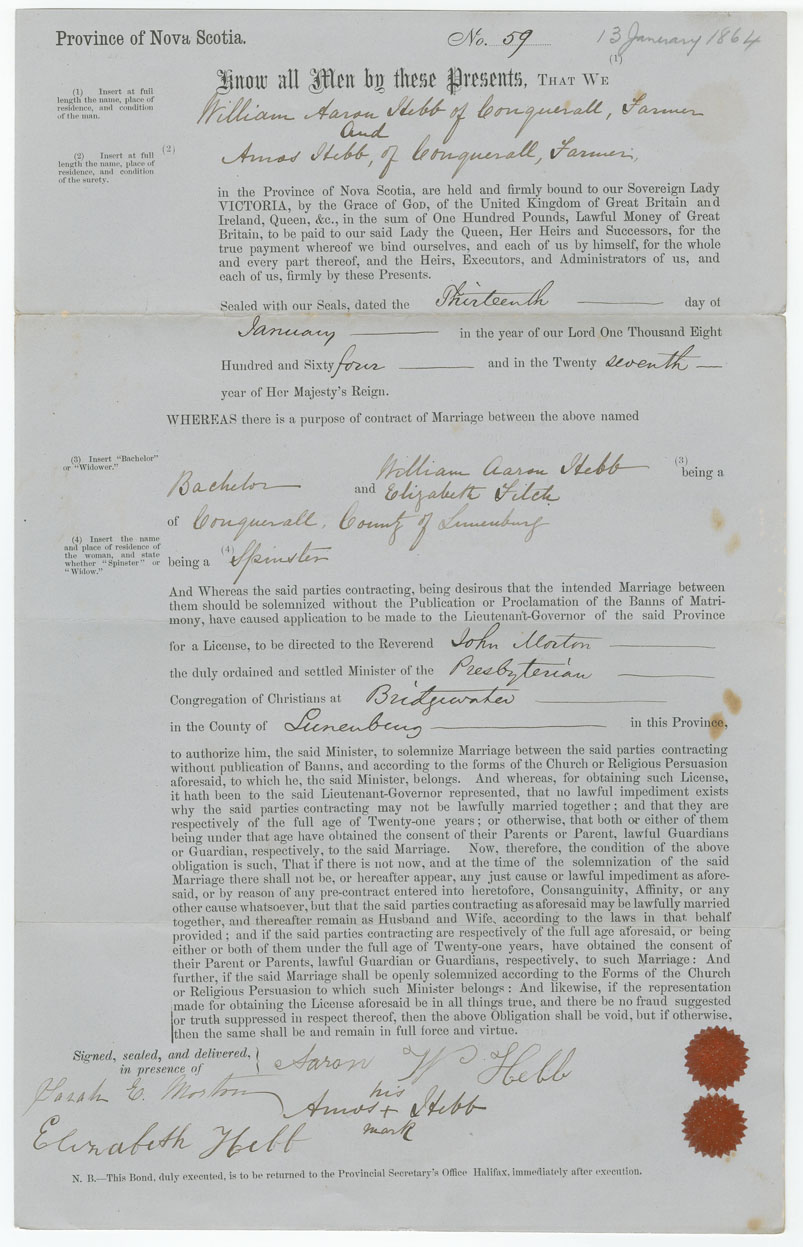 Province of Nova Scotia.
No. 59
13 January 1864
(1)
Know all Men by these Presents, THAT WE
(1) Insert at full
length the name, place of
residence, and condition
of the man.
William Aaron Hebb of Conquerall, Farmer
and
(2) Insert at full
length the name, place of
residence, and condition
of the surety.
(2)
Amos Hebb, of Conquerall, Farmer,
in the Province of Nova Scotia, are held and firmly bound to our Sovereign Lady
VICTORIA, by the Grace of God, of the United Kingdom of Great Britain and
Ireland, Queen, &c., in the sum of One Hundred Pounds, Lawful Money of Great
Britain, to be paid to our said Lady the Queen, Her Heirs and Successors, for the
true payment whereof we bind ourselves, and each of us by himself, for the whole
and every part thereof, and the Heirs, Executors, and Administrators of us, and
each of us, firmly by these Presents.
Sealed with our Seals, dated the Thirteenth day of
January in the year of our Lord One Thousand Eight
Hundred and Sixty four and in the Twenty seventh
year of Her Majesty's Reign.
WHEREAS there is a purpose of contract of Marriage between the above named
(3) Insert "Bachelor"
or "Widower."
William Aaron Hebb (3) being a
Bachelor and Elizabeth Fitch
of Conquerall, County of Lunenburg
(4) Insert the name
and place of residence of
the woman, and state
whether "Spinster" or
"Widow."
being a (4) Spinster
And Whereas the said parties contracting, being desirous that the intended Marriage between
them should be solemnized without the Publication or Proclamation of the Banns of Matri-
mony, have caused application to be made to the Lieutenant-Governor of the said Province
for a License, to be directed to the Reverend John Morton
the duly ordained and settled Minister of the Presbyterian
Congregation of Christians at Bridgewater
in the County of Lunenburg in this Province,
to authorize him, the said Minister, to solemnize Marriage between the said parties contracting
without publication of Banns, and according to the forms of the Church or Religious Persuasion
aforesaid, to which he, the said Minister, belongs. And whereas, for obtaining such License,
it hath been to the said Lieutenant-Governor represented, that no lawful impediment exists
why the said parties contracting may not be lawfully married together; and that they are
respectively of the full age of Twenty-one years; or otherwise, that both or either of them
being under that age have obtained the consent of their Parents or Parent, lawful Guardians
or Guardian, respectively, to the said Marriage. Now, therefore, the condition of the above
obligation is such, That if there is not now, and at the time of the solemnization of the said
Marriage there shall not be, or hereafter appear, any just cause or lawful impediment as afore-
said, or by reason of any pre-contract entered into heretofore, Consanguinity, Affinity, or any
other cause whatsoever, but that the said parties contracting as aforesaid may be lawfully married
together, and thereafter remain as Husband and Wife, according to the laws in that behalf
provided; and if the said parties contracting are respectively of the full age aforesaid, or being
either or both of them under the full age of Twenty-one years, have obtained the consent of
their Parent or Parents, lawful Guardian or Guardians, respectively, to such Marriage: And
further, if the said Marriage shall be openly solemnized according to the Forms of the Church
or Religious Persuasion to which such Minister belongs: And likewise, if the representation
made for obtaining the License aforesaid be in all things true, and there be no fraud suggested
or truth suppressed in respect thereof, then the above Obligation shall be void, but if otherwise,
then the same shall be and remain in full force and virtue.
Signed, sealed, and delivered,
in presence of
Aaron W Hebb
Sarah E. Morton
his
Amos + Hebb
mark
Elizabeth Hebb
N. B.—This Bond, duly executed, is to be returned to the Provincial Secretary's Office Halifax, immediately after execution.